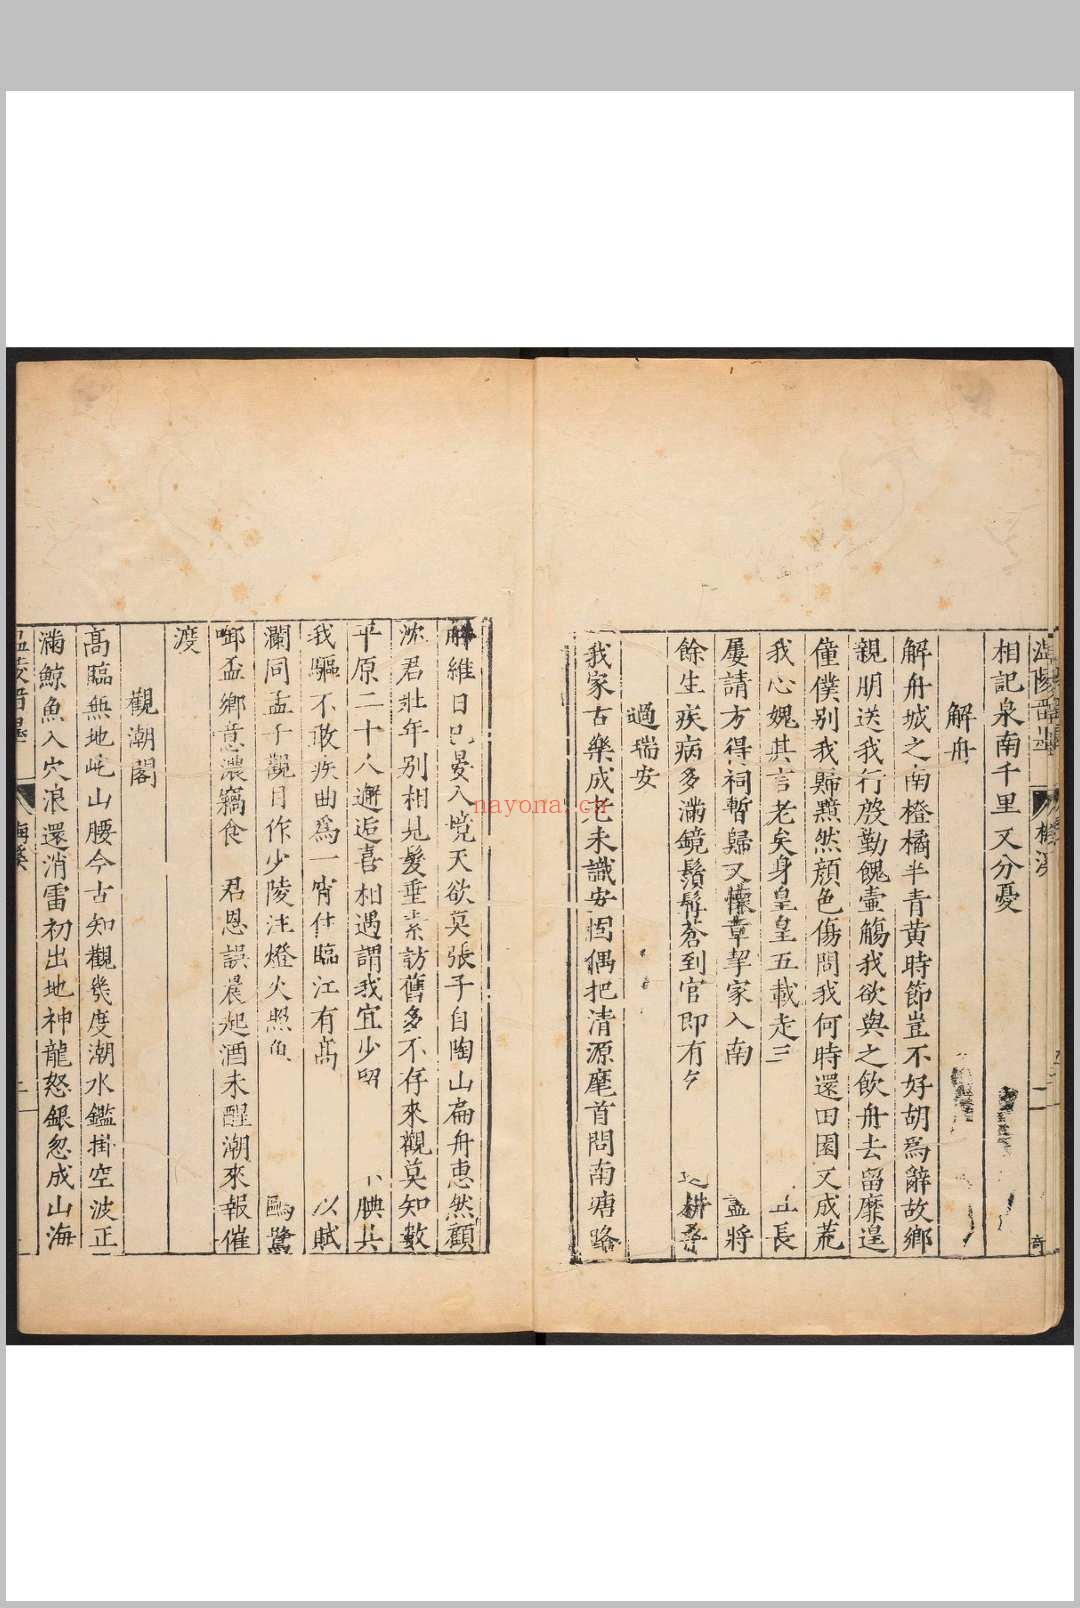 相記泉南千里又分憂
解舟
解舟城之南橙橘半青黃時節豈不好胡爲辭故鄉
親朋送我行殷勤餽壷觴我欲與之飲舟去留靡遑
僮僕别我歸黯然顔色傷問我何時還田園又成荒
我心媿其言老矣身皇皇五載走三
長
屢請方得祠暫歸又懷章挈家入南
盖將
餘生疾病多滿鏡鬚髯蒼到官即有
耕桑
過瑞安
我家古樂成老未識安固偶把清源麾首問南塘路
解維日已晏入境天欲莫張子自陶山扁舟惠然顧
沈君壯年别相見髮垂素訪舊多不存來觀莫知數
平原二十人邂逅喜相遇謂我宜少留
腆共
我驅不敢疾曲爲一宵住臨江有高
以賦
瀾同孟子觀月作少陵注燈火照魚
鷗鷺
啣盃鄉意濃竊食 君恩誤晨起酒未醒潮來報催
渡
觀潮閣
髙臨無地屹山腰今古知觀幾度潮水鑑掛空波正
滿鯨魚入穴浪還消雷初出地神龍怒銀忽成山海
nayona.cn